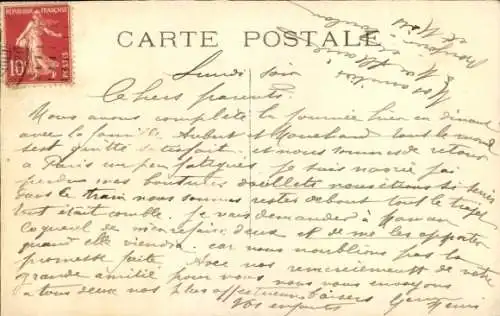 RÉPUBLIQUE FRANÇAISE
10
POSTES
CARTE POSTALE
Lundi soir
Chers parents.
Nous avons complété la journée hier en dinant
avec la famille Aubert et tout le monde
s'est quitté satisfait. et nous sommes de retour
à Paris un peu fatigués. Je suis navré j'ai
perdu mes boutures d'œillets nous étions si serrés
dans le train nous sommes restés debout tout le trajet
tout était comble. Je vais demander à Maman
Coqueuil de m'en refaire deux et de me les apporter
quand elle viendra. car nous n'oublions pas la
promesse faite. Avec nos remerciements de votre
grande amitié pour vous nous vous envoyons
à tous deux nos plus affectueux baisers
Vos enfants